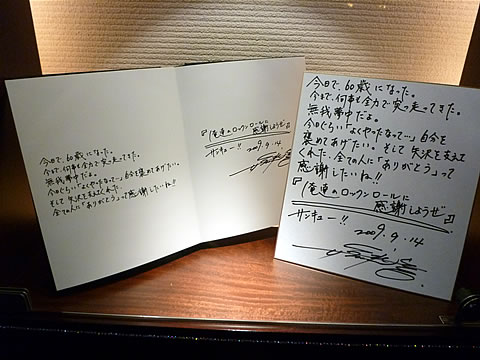 今日で、60歳になった。
今まで、何事も全力で突っ走ってきた。
無我夢中だよ。
今日ぐらい「よくやったなって…」自分を褒めてあげたい。
そして矢沢を支えてくれた、
全ての人に「ありがとう」って感謝したいね!!
『俺達のロックンロールに
感謝しようぜ』
サンキュー!!
2009.9.14
今日で、60歳になった。
今まで、何事も全力で突っ走ってきた。
無我夢中だよ。
今日ぐらい「よくやったなって…」自分を
褒めてあげたい。そして矢沢を支えて
くれた、全ての人に「ありがとう」って
感謝したいね!!
『俺達のロックンロールに
感謝しようぜ』
サンキュー!!
2009.9.14